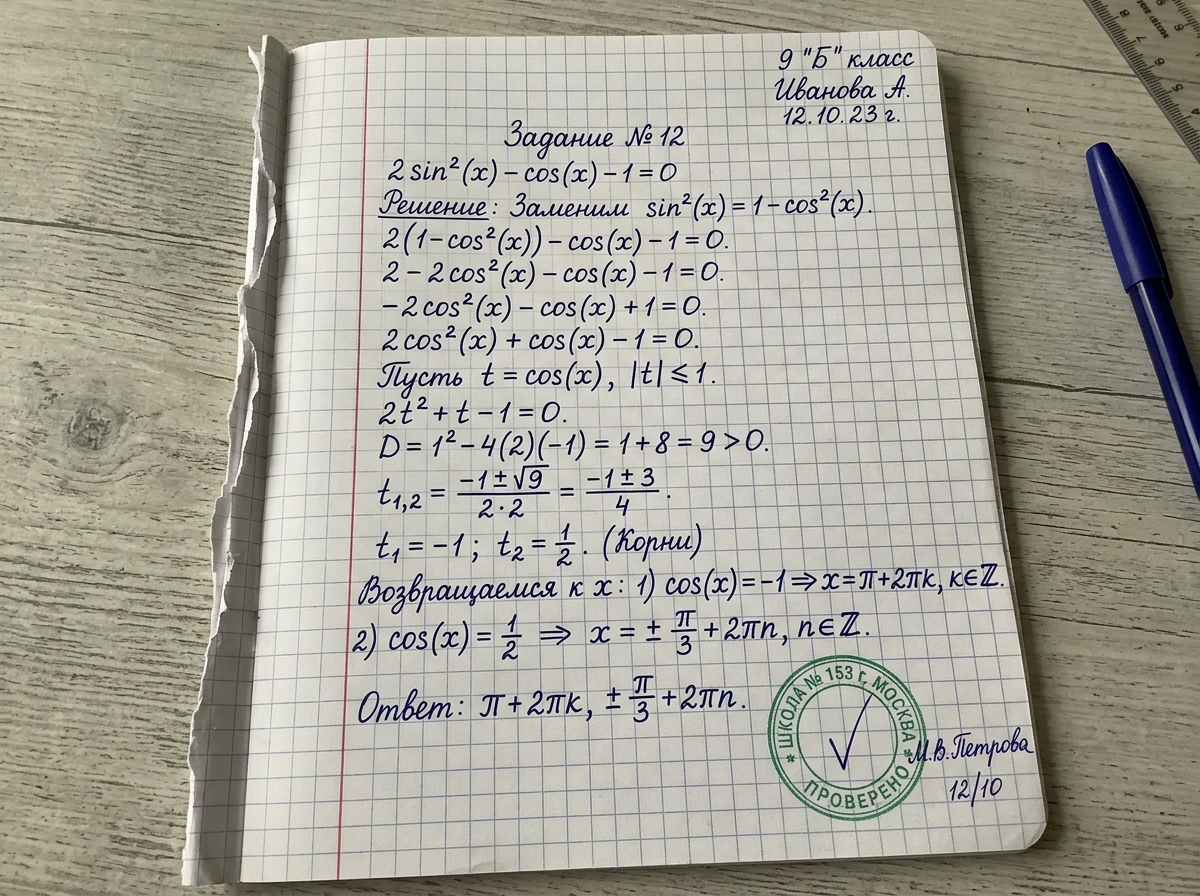 9 "Б" класс
Иванова А.
12.10.23 г.
Задание № 12
2 sin²(x) – cos(x) – 1 = 0
Решение: Заменим sin²(x) = 1 – cos²(x).
2(1 – cos²(x)) – cos(x) – 1 = 0.
2 – 2cos²(x) – cos(x) – 1 = 0.
–2cos²(x) – cos(x) + 1 = 0.
2cos²(x) + cos(x) – 1 = 0.
Пусть t = cos(x), |t| ⩽ 1.
2t² + t – 1 = 0.
D = 1² – 4(2)(–1) = 1 + 8 = 9 > 0.
t₁,₂ = (–1 ± √9)/(2·2) = (–1 ± 3)/4.
t₁ = –1; t₂ = 1/2. (Корни)
Возвращаемся к x: 1) cos(x) = –1 ⇒ x = π + 2πk, k∈ℤ.
2) cos(x) = 1/2 ⇒ x = ± π/3 + 2πn, n∈ℤ.
Ответ: π + 2πk, ± π/3 + 2πn.
* ШКОЛА № 153 г. МОСКВА *
ПРОВЕРЕНО
М.В.Петрова
12/10